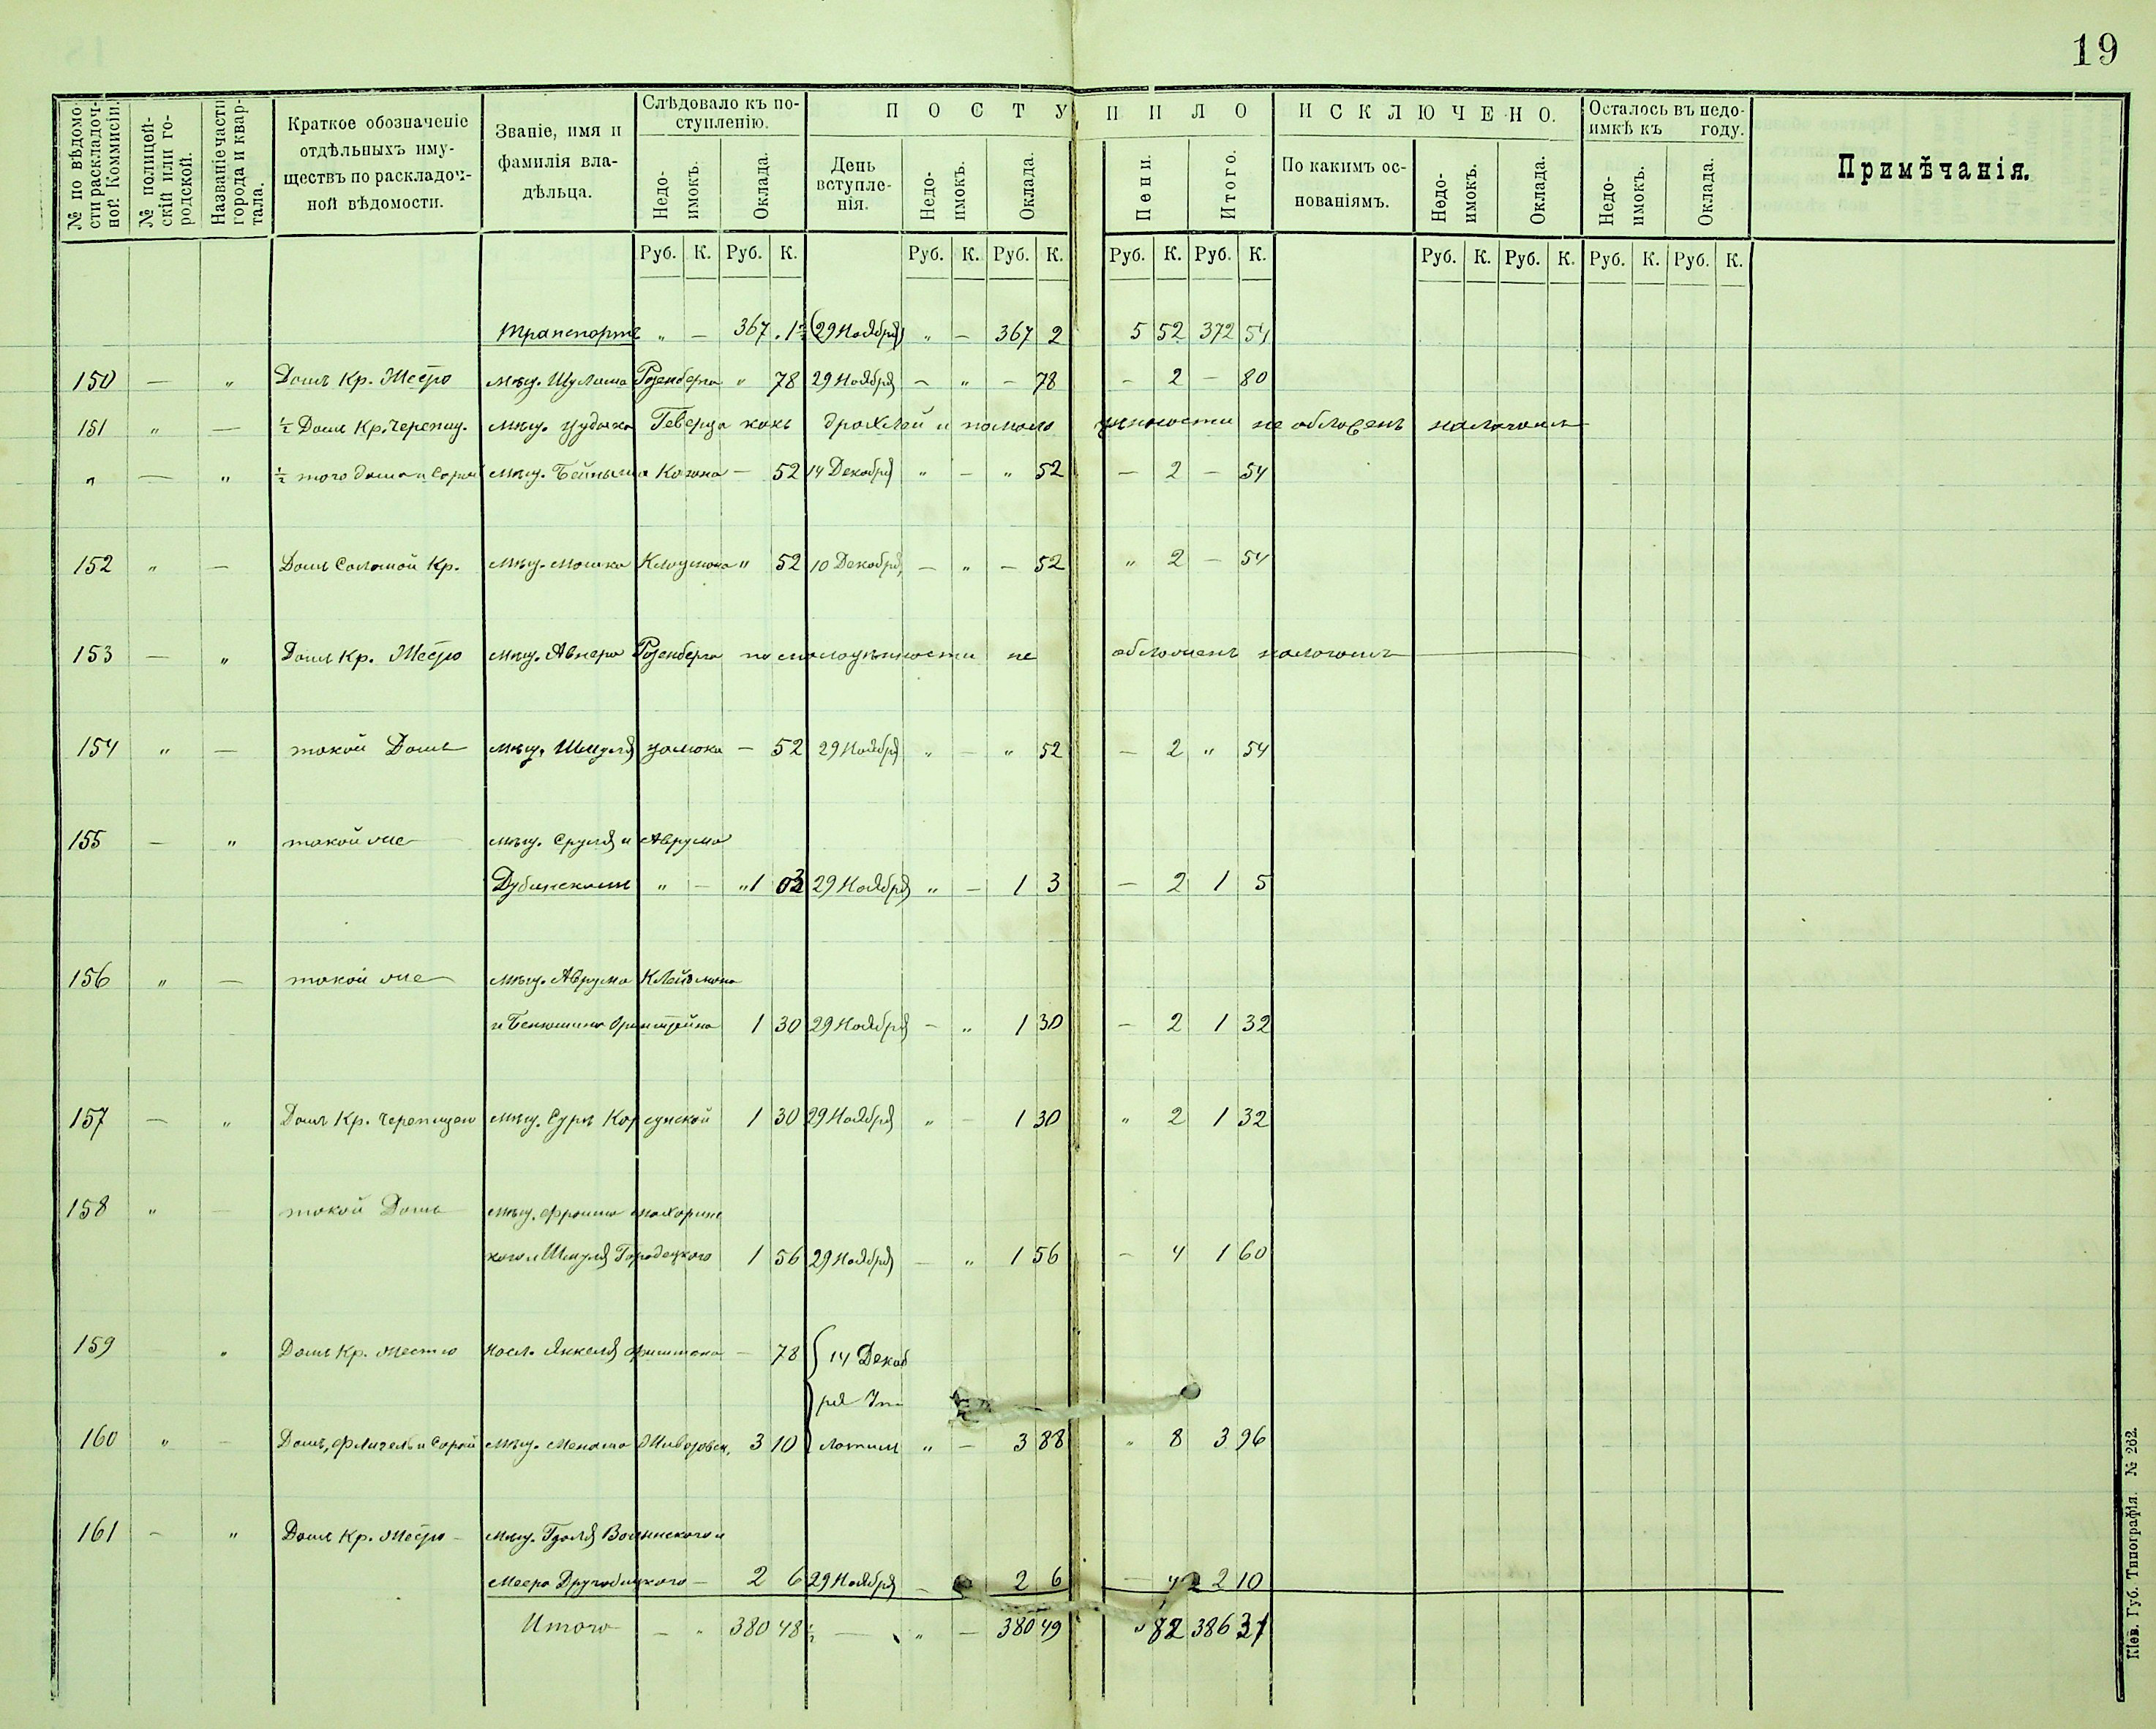 19
№ по вѣдомости раскладочной Коммисіи.
№ полицейскій или городской.
Названіе части города и квартала.
Краткое обозначеніе отдѣльныхъ имуществъ по раскладочной вѣдомости.
Званіе, имя и фамилія владѣльца.
Слѣдовало къ поступленію.
Недоимокъ.
Оклада.
ПОСТУПИЛО
День вступленія.
Недоимокъ.
Оклада.
Пени.
Итого.
ИСКЛЮЧЕНО.
По какимъ основаніямъ.
Недоимокъ.
Оклада.
Осталось въ недоимкѣ къ году.
Недоимокъ.
Оклада.
Примѣчанія.
Руб. К. Руб. К. Руб. К. Руб. К. Руб. К. Руб. К. Руб. К. Руб. К. Руб. К. Руб. К.
Транспортъ „ — 367 . 1½ (29 Ноября) „ — 367 2 5 52 372 54
150 — „ Домъ Кр. Жестю мѣщ. Шулима Розенберга „ 78 29 Ноября — „ — 78 — 2 — 80
151 „ — ½ Домъ Кр. Черепиц. мѣщ. Гевирца какъ дряхлый и по мало цѣнности не обложенъ налогомъ
„ — „ ½ того дома и Сарай мѣщ. Бейныша Когана — 52 14 Декабря „ — „ 52 — 2 — 54
152 „ — Домъ Соломой Кр. мѣщ. Мошка „ 52 10 Декабря — „ — 52 „ 2 — 54
153 — „ Домъ Кр. Жестю мѣщ. Авнера Розенберга по малоцѣнности не обложенъ налогомъ
154 „ — такой Домъ мѣщ. Шмуля — 52 29 Ноября „ — „ 52 — 2 „ 54
155 — „ такой же мѣщ. Сруля и Аврума
Дубинскихъ „ — „ 1 03 29 Ноября „ — 1 3 — 2 1 5
156 „ — такой же мѣщ. Аврума Клеймана
и Бенюмина 1 30 29 Ноября — „ 1 30 — 2 1 32
157 — „ Домъ Кр. Черепицею мѣщ. Суры Корсунской 1 30 29 Ноября „ — 1 30 „ 2 1 32
158 „ — такой Домъ мѣщ. Фроима Махорин
кого и Шмуля Городецкого 1 56 29 Ноября — „ 1 56 — 4 1 60
159 „ Домъ Кр. Жестю насл. Янкеля Фишмана — 78 { 14 Декаб
ря
160 „ — Домъ, Флигель и Сарай мѣщ. 3 10 „ — 3 88 „ 8 3 96
161 — „ Домъ Кр. Жестю — мѣщ. и
Меера — 2 6 29 Ноября — 2 6 — 4 2 10
Итого — „ 380 48½ — „ — 380 49 82 386 31
Кіев. Губ. Типографія. № 262.